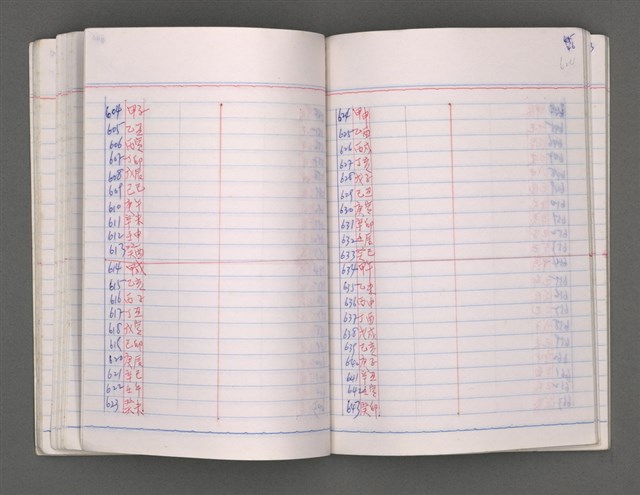 604 甲子
605 乙丑
606 丙寅
607 丁卯
608 戊辰
609 己巳
610 庚午
611 辛未
612 壬申
613 癸酉
614 甲戌
615 乙亥
616 丙子
617 丁丑
618 戊寅
619 己卯
620 庚辰
621 辛巳
622 壬午
623 癸未
624 甲申
625 乙酉
626 丙戌
627 丁亥
628 戊子
629 己丑
630 庚寅
631 辛卯
632 壬辰
633 癸巳
634 甲午
635 乙未
636 丙申
637 丁酉
638 戊戌
639 己亥
640 庚子
641 辛丑
642 壬寅
643 癸卯